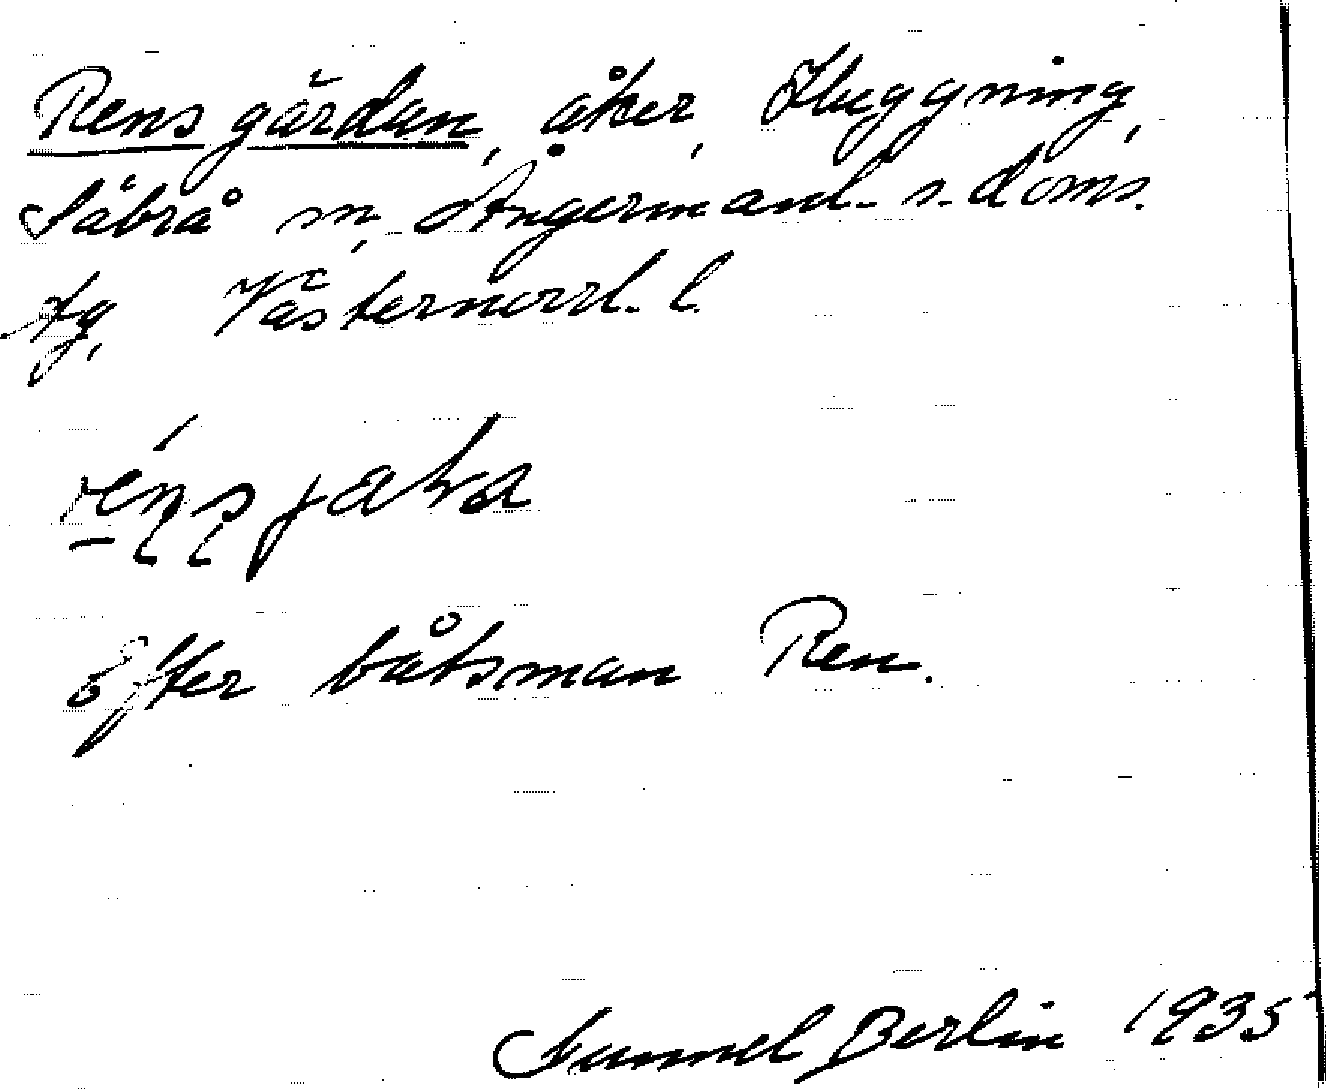 Rensgärdan, åker, Huggning,
Säbrå sn, Ångermanl. s. doms.
tg, Västernorrl. l.
Efter båtsman Ren.
Samuel Berlin 1935